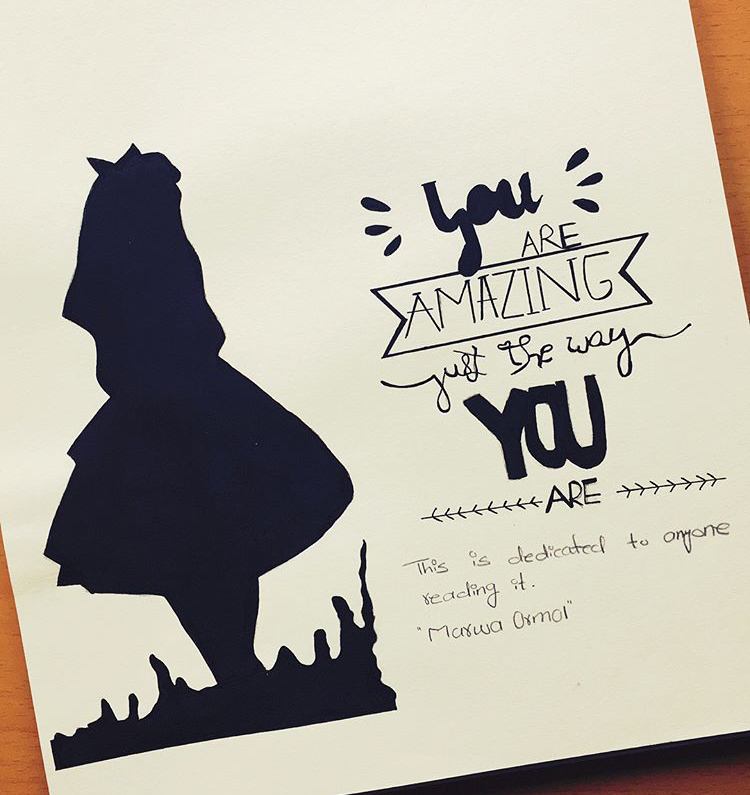 You
ARE
AMAZING
just the way
YOU
ARE
This is dedicated to anyone
reading it.
"Marwa Ormol"